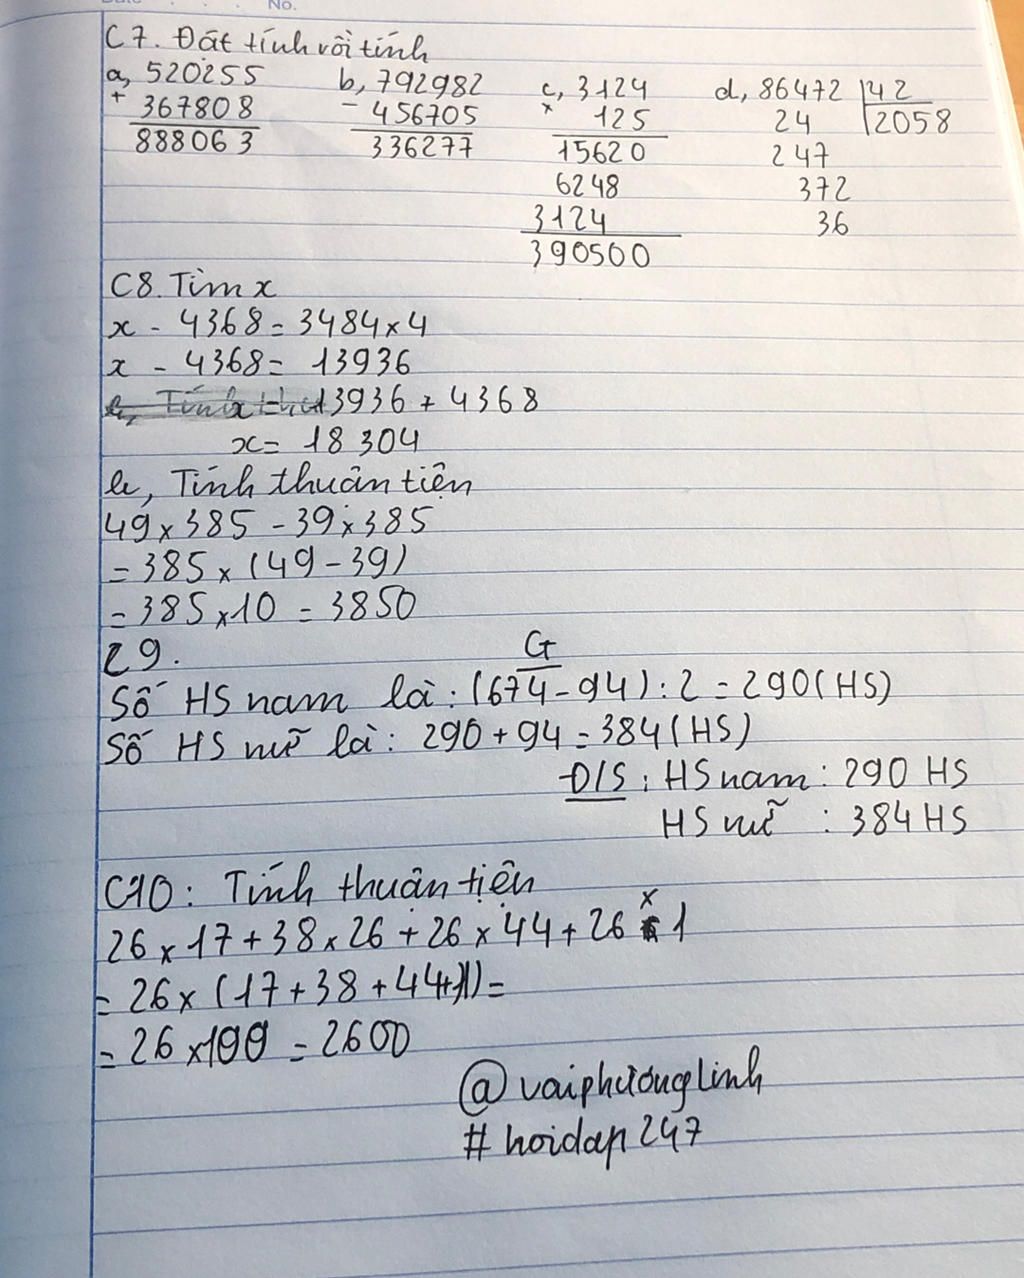 No.
C7. Đặt tính rồi tính
a, 520255 b, 792982 c, 3124 d, 86472 42
+ 367808 - 456705 x 125 24 2058
888063 336277 15620 247
6248 372
3124 36
390500
C8. Tìm x
x - 4368 = 3484 x 4
x - 4368 = 13936
x = 13936 + 4368
x = 18 304
b, Tính thuân tiện
49 x 385 - 39 x 385
= 385 x (49 - 39)
= 385 x 10 = 3850
C9. G
Số HS nam là : (674 - 94) : 2 = 290 (HS)
Số HS nữ là : 290 + 94 = 384 (HS)
Đ/S : HS nam : 290 HS
HS nữ : 384 HS
C10 : Tính thuân tiện
26 x 17 + 38 x 26 + 26 x 44 + 26 x 1
= 26 x (17 + 38 + 44 + 1) =
= 26 x 100 = 2600
@vaiphuonglinh
# hoidap 247